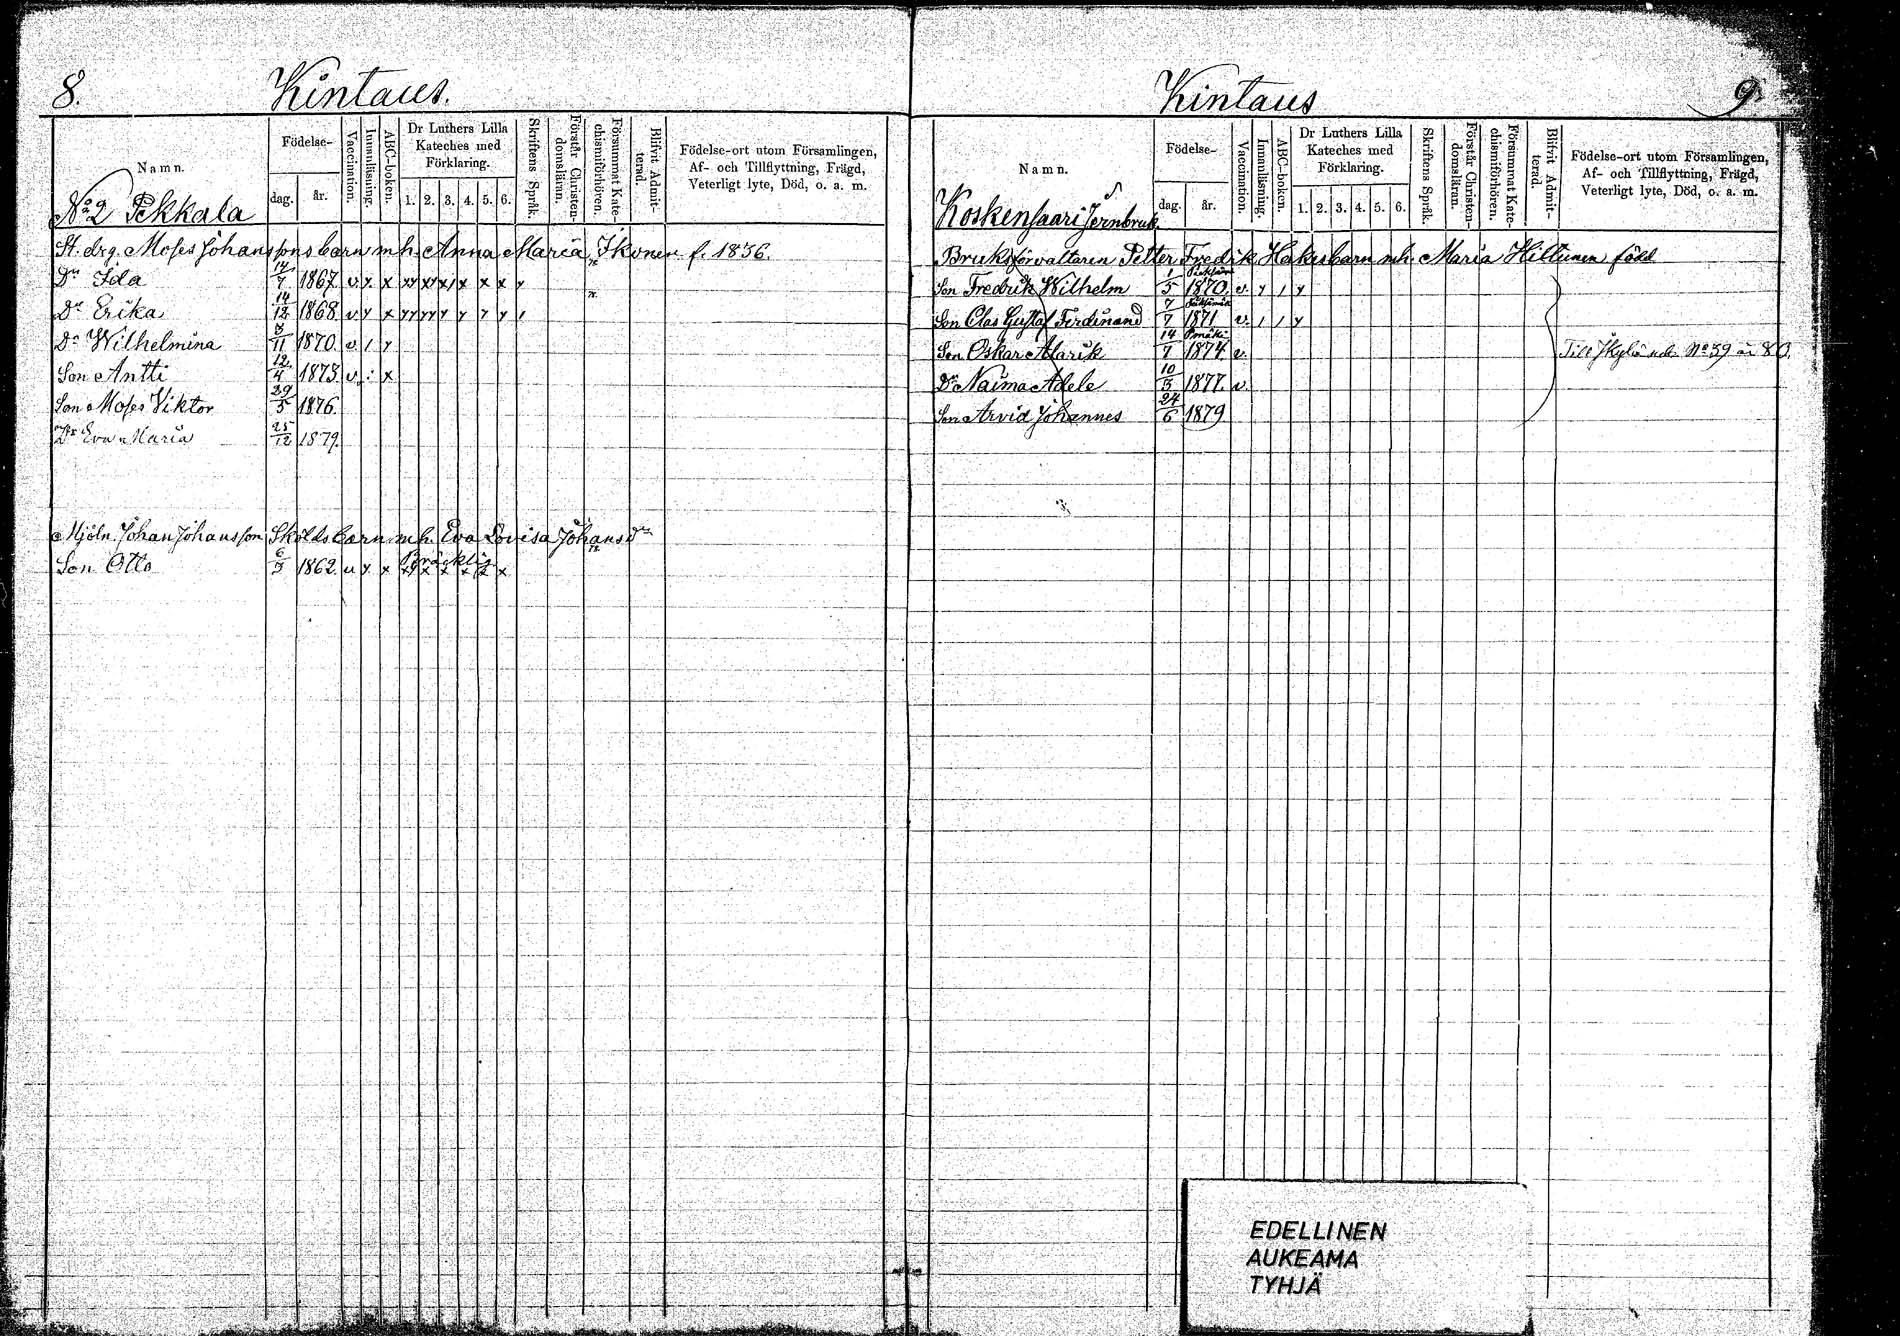 8. Kintaus.
Namn. Födelse- dag. år. Vaccination. Innanläsning. ABC-boken. Dr Luthers Lilla Kateches med Förklaring. 1. 2. 3. 4. 5. 6. Skriftens Språk. Förstår Christendomsläran. Försummat Katechismiförhören. Blifvit Admitterad. Födelse-ort utom Församlingen, Af- och Tillflyttning, Frägd, Veterligt lyte, Död, o. a. m.
No 2 Pekkala
St. drg. Moses Johanssons barn mh. Anna Maria Ikonen f. 1836.
Dr Ida 14/7 1867. v. y x xy xy x/ x x x y
Dr Erika 14/12 1868. v y x yy yy y y y y /
Dr Wilhelmina 8/11 1870. v. / y
Son Antti 12/4 1873. v. : x
Son Moses Viktor 29/5 1876.
Dr Eva Maria 25/12 1879.
Mjöln. Johan Johansson Skölds barn mh. Eva Lovisa Johansdr
Son Otto 6/5 1862. v y x Bräcklig x x x x x
9.
Kintaus
Namn. Födelse- dag. år. Vaccination. Innanläsning. ABC-boken. Dr Luthers Lilla Kateches med Förklaring. 1. 2. 3. 4. 5. 6. Skriftens Språk. Förstår Christendomsläran. Försummat Katechismiförhören. Blifvit Admitterad. Födelse-ort utom Församlingen, Af- och Tillflyttning, Frägd, Veterligt lyte, Död, o. a. m.
Koskensaari Jernbruk.
Bruksförvaltaren Petter Fredrik Hakes barn mh. Maria Hiltunen född
Son Fredrik Wilhelm 1/5 1870. v. y / y
Son Clas Gustaf Ferdinand 7/7 1871 v. / / y
Son Oskar Alarik 14/7 1874. v. Till Jkylä No 39 år 80.
Dr Naima Adele 10/3 1877. v.
Son Arvid Johannes 24/6 1879
EDELLINEN
AUKEAMA
TYHJÄ